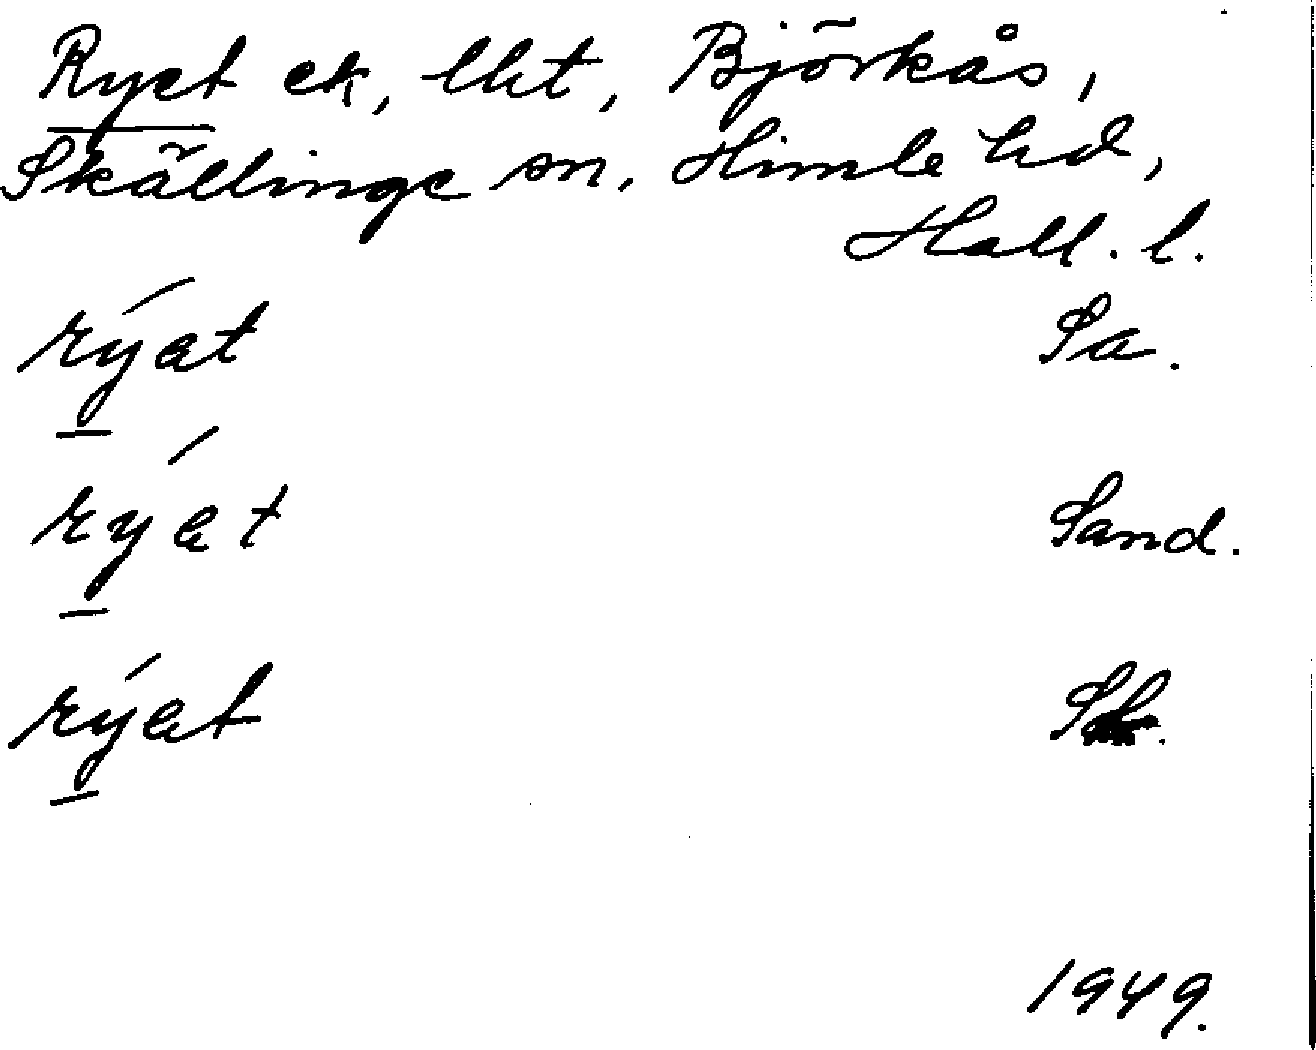 Ryet ek, lht, Björkås,
Skällinge sn, Himle hd,
Hall. l.
rýat Sa.
rýat Sand.
rýat
1949.